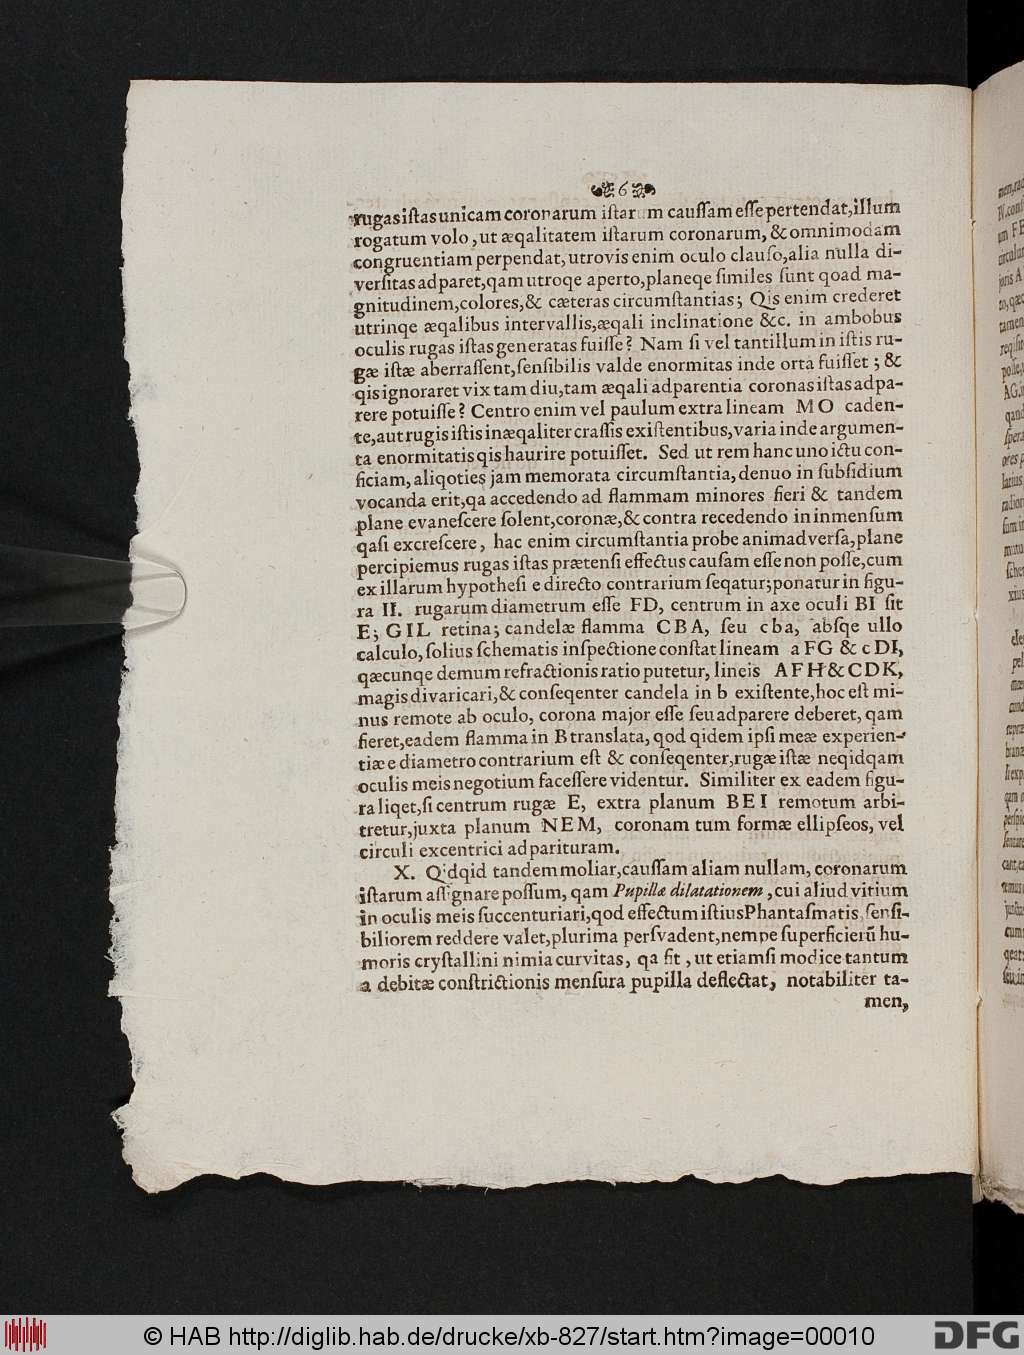 6
rugas iſtas unicam coronarum iſtarum cauſſam eſſe pertendat, illum
rogatum volo, ut æqalitatem iſtarum coronarum, & omnimodam
congruentiam perpendat, utrovis enim oculo clauſo, alia nulla di-
verſitas adparet, qam utroqe aperto, planeqe ſimiles ſunt qoad ma-
gnitudinem, colores, & cæteras circumſtantias; Qis enim crederet
utrinqe æqalibus intervallis, æqali inclinatione &c. in ambobus
oculis rugas iſtas generatas fuiſſe? Nam ſi vel tantillum in iſtis ru-
gæ iſtæ aberraſſent, ſenſibilis valde enormitas inde orta fuiſſet; &
qis ignoraret vix tam diu, tam æqali adparentia coronas iſtas adpa-
rere potuiſſe? Centro enim vel paulum extra lineam MO caden-
te, aut rugis iſtis inæqaliter craſſis exiſtentibus, varia inde argumen-
ta enormitatis qis haurire potuiſſet. Sed ut rem hanc uno ictu con-
ficiam, aliqoties jam memorata circumſtantia, denuo in ſubſidium
vocanda erit, qa accedendo ad flammam minores fieri & tandem
plane evaneſcere ſolent, coronæ, & contra recedendo in inmenſum
qaſi excreſcere, hac enim circumſtantia probe animadverſa, plane
percipiemus rugas iſtas prætenſi effectus cauſam eſſe non poſſe, cum
ex illarum hypotheſi e directo contrarium ſeqatur; ponatur in figu-
ra II. rugarum diametrum eſſe FD, centrum in axe oculi BI ſit
E; GIL retina; candelæ flamma CBA, ſeu cba, abſqe ullo
calculo, ſolius ſchematis inſpectione conſtat lineam aFG & cDI,
qæcunqe demum refractionis ratio putetur, lineis AFH & CDK,
magis divaricari, & conſeqenter candela in b exiſtente, hoc eſt mi-
nus remote ab oculo, corona major eſſe ſeu adparere deberet, qam
fieret, eadem flamma in B translata, qod qidem ipſi meæ experien-
tiæ e diametro contrarium eſt & conſeqenter, rugæ iſtæ neqidqam
oculis meis negotium faceſſere videntur. Similiter ex eadem figu-
ra liqet, ſi centrum rugæ E, extra planum BEI remotum arbi-
tretur, juxta planum NEM, coronam tum formæ ellipſeos, vel
circuli excentrici adparituram.
X. Qidqid tandem moliar, cauſſam aliam nullam, coronarum
iſtarum aſſignare poſſum, qam Pupillæ dilatationem, cui aliud vitium
in oculis meis ſuccenturiari, qod effectum iſtius Phantaſmatis ſenſi-
biliorem reddere valet, plurima perſvadent, nempe ſuperficierū hu-
moris cryſtallini nimia curvitas, qa fit, ut etiamſi modice tantum
a debitæ conſtrictionis menſura pupilla deflectat, notabiliter ta-
men,
© HAB http://diglib.hab.de/drucke/xb-827/start.htm?image=00010
DFG